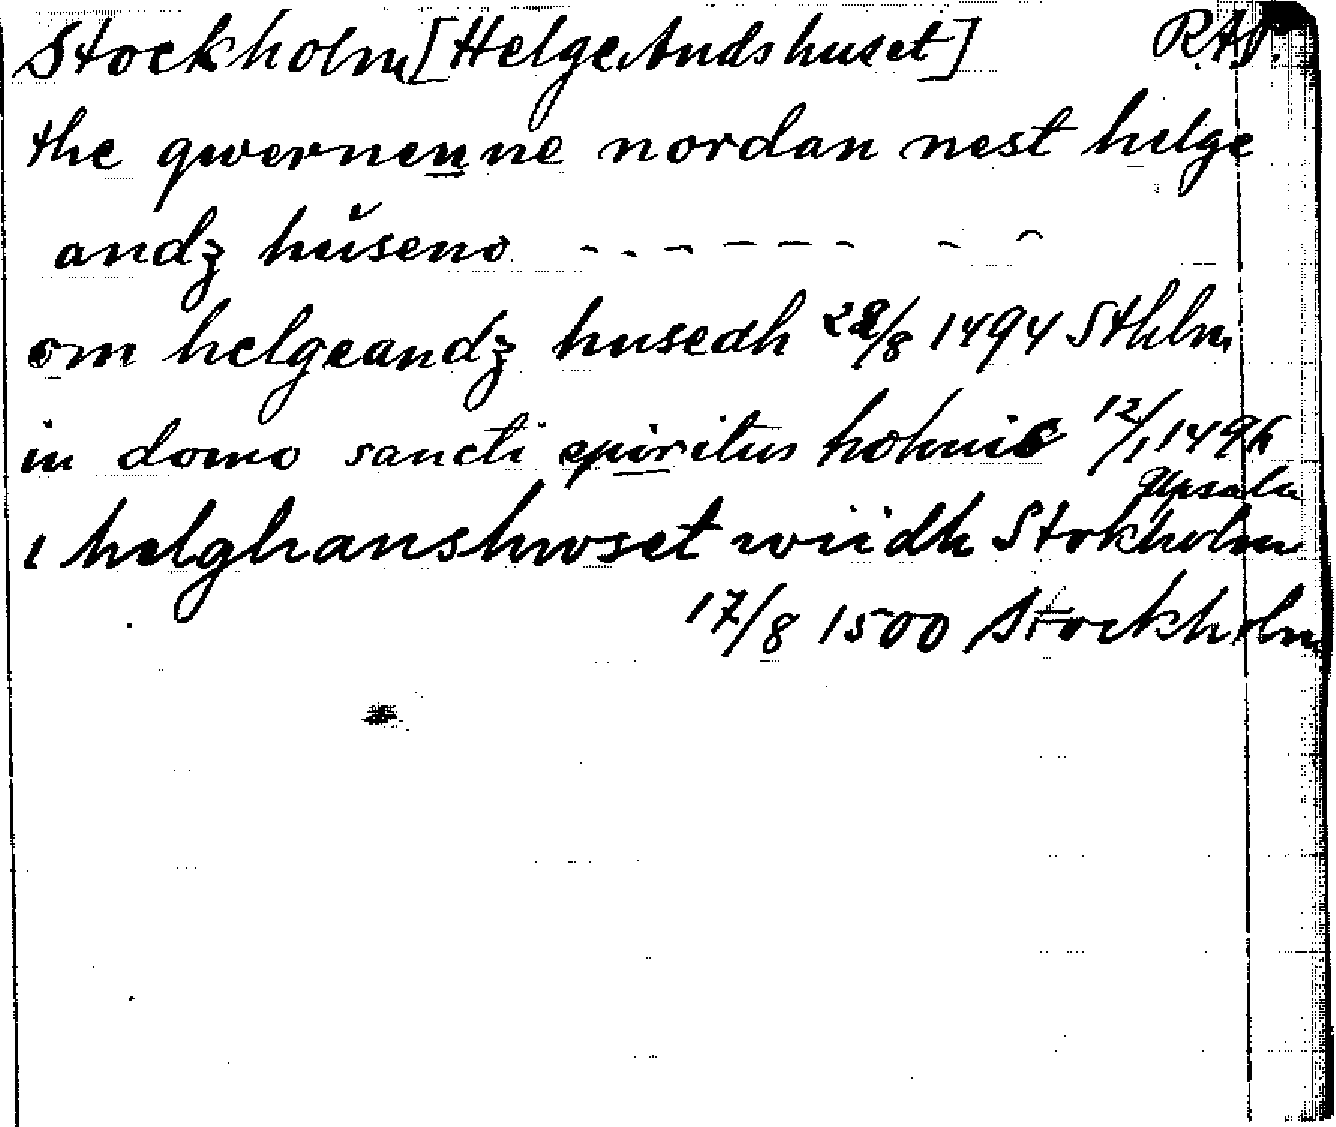 Stockholm [Helge Andshuset] R.A.P.
the qwernenne nordan nest helge
andz hŭseno - - - - - - - -
om helgeandz husedh 28/8 1494 Sthlm
in domo sancti spiritus holmis 12/1 1496
Upsala
i helghanshwset wiidh Stokholm
17/8 1500 Stockholm